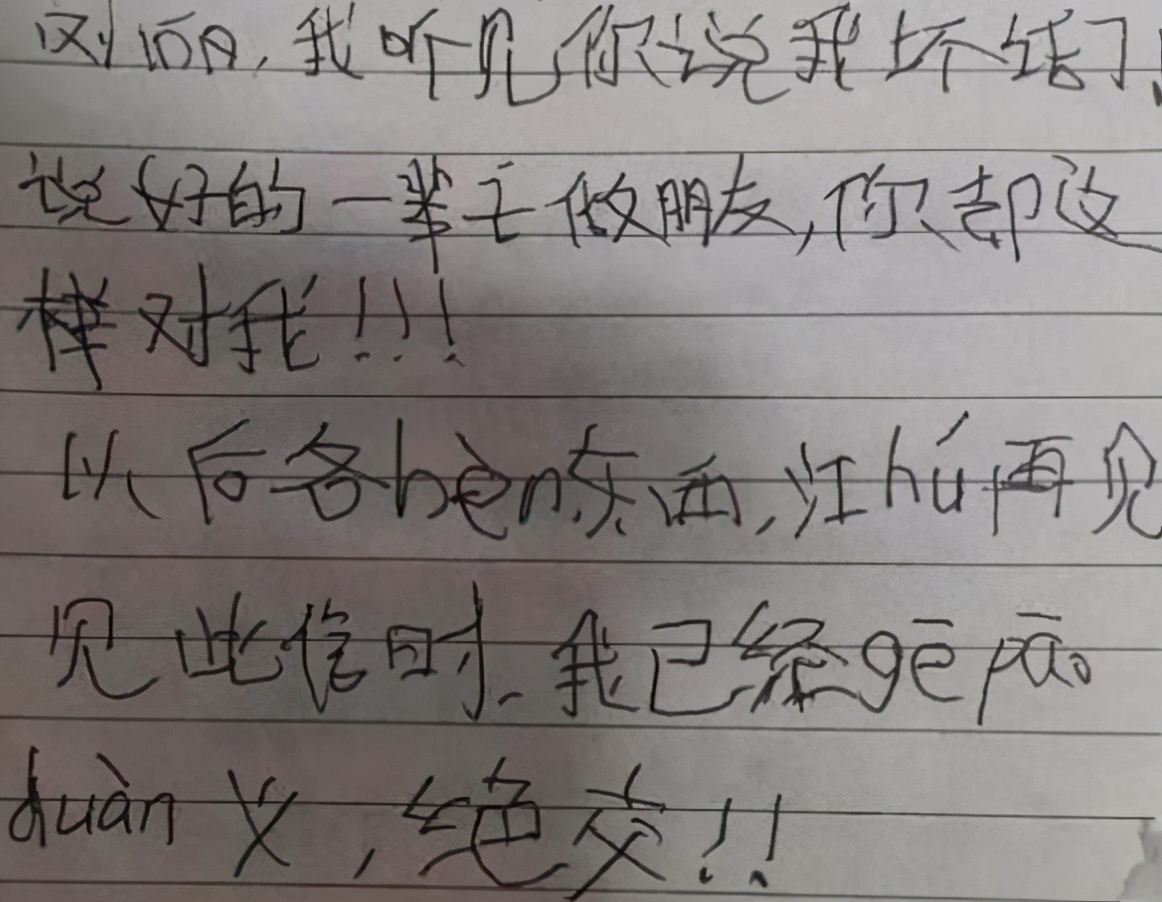 刘怡A,我听见你说我坏话了!
说好的一辈子做朋友,你却这
样对我!!!
以后各bèn东西,江hú再见
见此信时,我已经gē pāo
duàn义,绝交!!